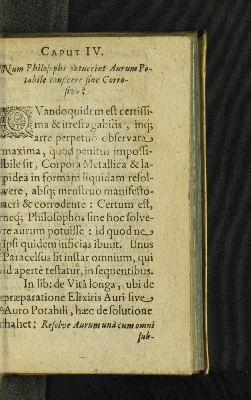 CAPUT IV.
Num Philosophi potuerint Aurum Po-
tabile conficere sine Corro-
sivo?
QVandoquidem est certissi-
ma & irrefragabilis, inq;
arte perpetuò observata
maxima, quod penitus impossi-
bile sit, Corpora Metallica & la-
pidea in formam liquidam resol-
vere, absq; menstruo manifesto-
acri & corrodente: Certum est,
neq; Philosophos sine hoc solve-
re aurum potuisse: id quod ne
ipsi quidem inficias ibunt. Unus
Paracelsus sit instar omnium, qui
id apertè testatur, in sequentibus.
In lib: de Vitâ longa, ubi de
præparatione Elixiris Auri sive
Auro Potabili, hæc de solutione
habet: Resolve Aurum unà cum omni
sub-